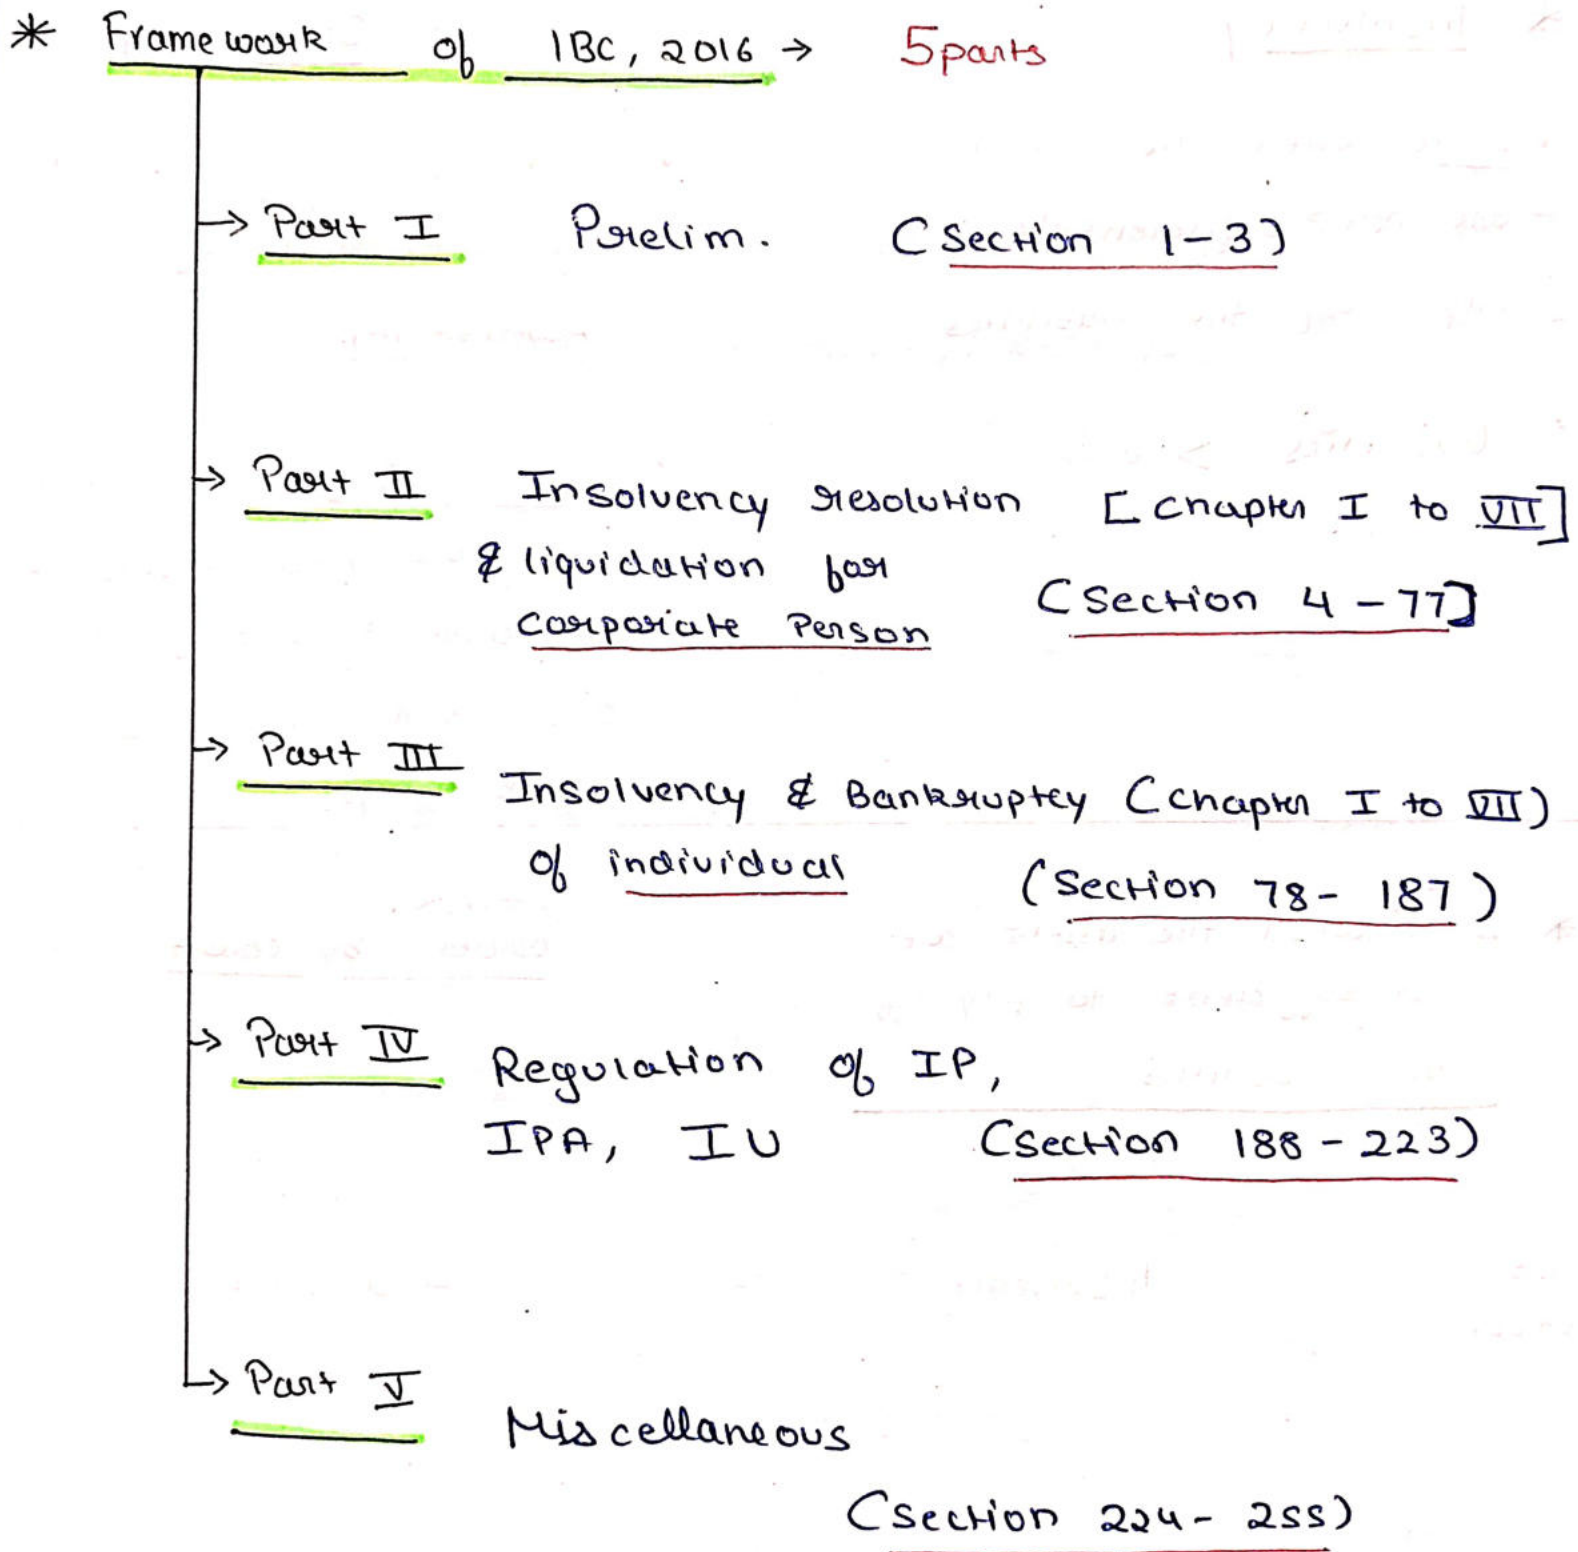 * Framework of IBC, 2016 → 5 parts
→ Part I Prelim. (Section 1-3)
→ Part II Insolvency resolution [Chapter I to VII]
& liquidation for
Corporate Person (Section 4-77]
→ Part III
Insolvency & Bankruptcy (Chapter I to VII)
of individual (Section 78-187)
→ Part IV Regulation of IP,
IPA, IU (Section 188-223)
→ Part V
Miscellaneous
(Section 224-255)